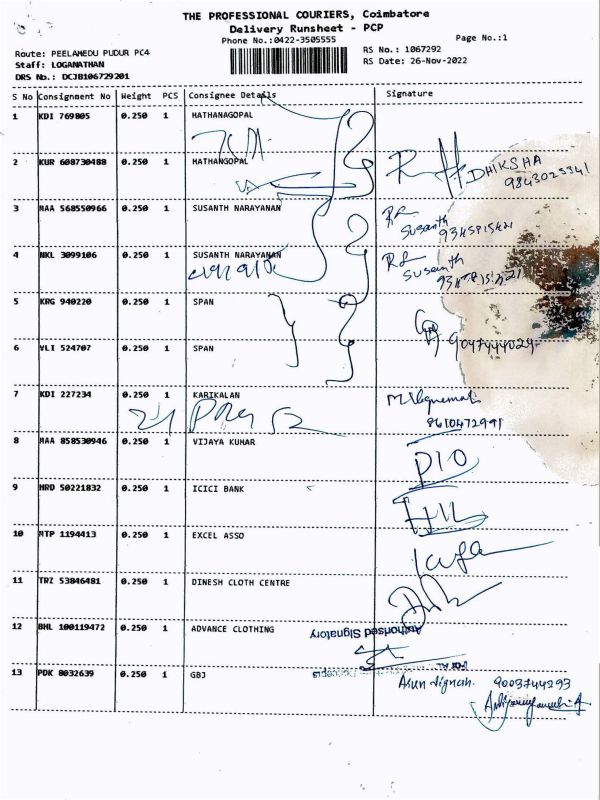 THE PROFESSIONAL COURIERS, Coimbatore
Delivery Runsheet - PCP
Phone No.:0422-3505555
Page No.:1
Route: PEELAMEDU PUDUR PC4
RS No.: 1067292
Staff: LOGANATHAN
RS Date: 26-Nov-2022
DRS No.: DCJB106729201
S No Consignment No Weight PCS Consignee Details Signature
1 KDI 769805 0.250 1 HATHANAGOPAL
2 KUR 608730488 0.250 1 HATHANGOPAL
DHIKSHA
9843025341
3 MAA 568550966 0.250 1 SUSANTH NARAYANAN
Susanth
9345815421
4 NKL 3099106 0.250 1 SUSANTH NARAYANAN
Susanth
5 KRG 940220 0.250 1 SPAN
9047444029
6 VLI 524707 0.250 1 SPAN
7 KDI 227234 0.250 1 KARIKALAN
8610472991
8 MAA 858530946 0.250 1 VIJAYA KUHAR
9 HRD 50221832 0.250 1 ICICI BANK
10 MTP 1194413 0.250 1 EXCEL ASSO
11 TRZ 53846481 0.250 1 DINESH CLOTH CENTRE
12 BHL 100119472 0.250 1 ADVANCE CLOTHING
Authorised Signatory
13 PDK 8032639 0.250 1 GBJ
9003744293